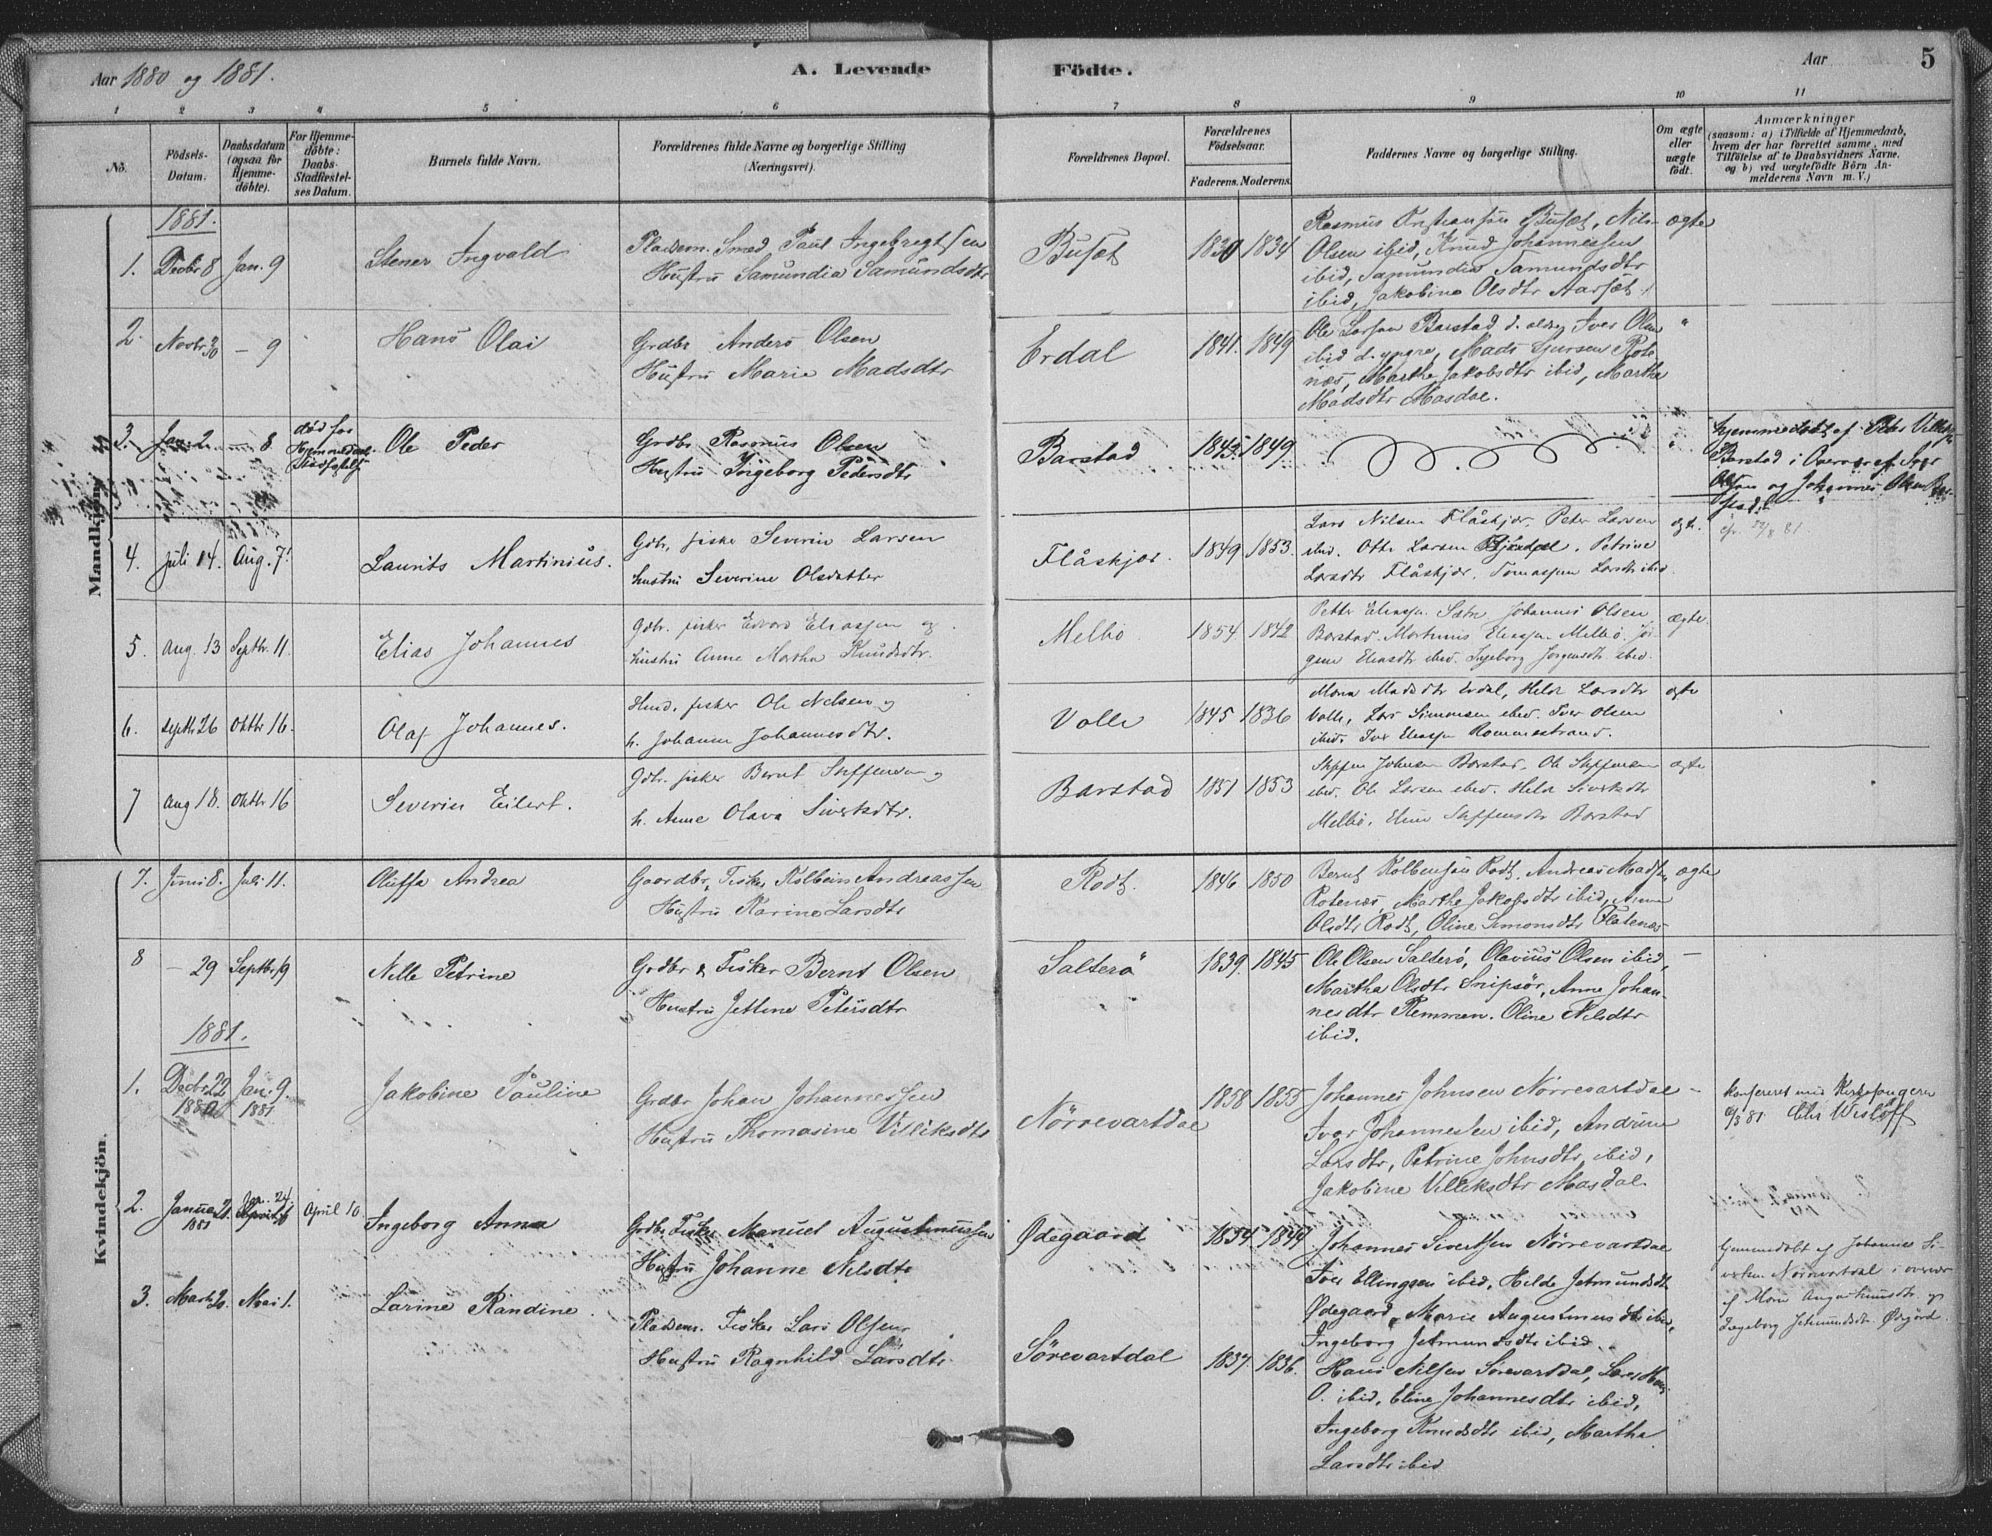 Aar 1880 og 1881.
A. Levende Födte.
Aar
5
1 2 3 4 5 6 7 8 9 10 11
No.
Födsels-Datum.
Daabsdatum (ogsaa for Hjemme-döbte).
For Hjemme-döbte: Daabs-Stadfæstel-ses Datum.
Barnets fulde Navn.
Forældrenes fulde Navne og borgerlige Stilling (Næringsvei).
Forældrenes Bopæl.
Forældrenes Födselsaar.
Faderens. Moderens.
Faddernes Navne og borgerlige Stilling.
Om ægte eller uægte födt.
Anmærkninger
(saasom: a) i Tilfælde af Hjemmedaab,
hvem der har forrettet samme, med
Tilföielse af to Daabsvidners Navne,
og b) ved uægtefödte Börn An-
melderens Navn m. V.)
Mandkjön.
1881.
1. Decbr 8 Jan. 9 Stener Ingvald
Pladsm. Smed Paul Ingebregtsen
Hustru Samundia Samundsdtr
Busæt 1830 1834
Rasmus Busæt, Nils
Olsen ibid, Knud Johannessen
ibid, Samundia Samundsdtr
ibid, Jakobine Olsdtr Aarsæt
ægte
2. Novbr 30 — 9 Hans Olai
Grdbr Anders Olsen
Hustru Marie Madsdtr
Erdal 1841. 1849
Ole Larsen Barstad d. ældre, Iver Olsen
ibid d. yngre, Mads Rote-
næs, Marthe Jakobsdtr ibid, Martha
Madsdtr Masdal.
"
3. Jan. 2 — 8 død før Hjemmedaab Stadfæstelse
Ole Peder
Grdbr Rasmus Olsen
Hustru Ingeborg Pedersdtr
Barstad 1845 1849
"
Hjemmedøbt af
Barstad i Overvær af Iver
Olsen og Johannes Olsen Bar-
stad.
4. Juli 14. Aug. 7. Laurits Martinius.
Gdbr. fisker Severin Larsen
hustru Severine Olsdatter
Flåskjær. 1849 1853.
Lars Nilsen Flåskjær, Peter Larsen
ibid. Otto Larsen Petrine
Larsdtr Flåskjær. Larsdtr ibid.
ægte.
5. Aug. 13 Septbr. 11. Elias Johannes
Gdbr. fisker Edvard Eliassen og
hustru Anne Martha Knudsdtr.
Melbö 1854 1842
Petter Eliassen Johannes Olsen
Barstad. Martinus Eliassen Melbö. Jör-
gine Eliasdtr ibid. Ingeborg Jörgensdtr ibid.
ægte.
6. Septbr 26 Oktbr 16. Olaf Johannes.
fisker Ole Nilsen og
h. Johanne Johannesdtr.
Volle 1845 1836
Madsdtr Erdal, Larsdtr
Volle, Lars Simonsen ibid. Iver Olsen
ibid. Iver Eliassen Rommestrand.
ægte
7 Aug 18. Oktbr 16 Severin Eilert.
Gdbr. fisker Bernt Steffensen og
h. Anne Olava Sivertsdtr.
Barstad 1851 1853
Steffen Johnsen Barstad, Ole Steffensen
ibid. Ole Larsen ibid. Sivertsdtr
Melbö. Steffensdtr Barstad
ægte
Kvindekjön.
7. Juni 8. Juli 11. Oluffa Andrea
Gaardbr, Fisker Kolbein Andreassen
Hustru Karine Larsdtr
Rødt. 1846 1850
Bernt Kolbensön Rødt, Andreas Madsen
Rotenæs, Marthe Jakobsdtr ibid, Anne
Olsdtr Rødt, Oline Simonsdtr Flatenæs
ægte
8 — 29 Septbr 19 Nelle Petrine
Grdbr & Fisker Bernt Olsen
Hustru Jettine Petersdtr
Salterö 1839. 1845
Ole Olsen Salterö, Olavius Olsen ibid,
Martha Olsdtr Snipsör, Anne Johan-
nesdtr Remmen. Oline Nilsdtr
ibid.
—
1881.
1. Decbr 22 1880 Jan. 9. 1881 Jakobine Pauline
Grdbr Johan Johannessen
Hustru Thomasine Villiksdtr
Nörrevartdal 1858 1855
Johannes Johnsen Nörrevartdal
Ivar Johannessen ibid, Andrine
Larsdtr, Petrine Johnsdtr, ibid,
Jakobine Villiksdtr Masdal.
—
konfereret med Kirkesangeren
81. Chr Wislöff
2. Januar 21. 1881 Jan. 24. April 10. Ingeborg Anna
Grdbr, Fisker Manuel Augustinussen
Hustru Johanne Nilsdtr
Ødegaard 1854 1849
Johannes Sivertsen Nörrevartdal
Iver Ellingsen ibid, Hilde Jetmundsdtr
Ødegaard, Marie Augustinusdtr ibid,
Ingeborg Jetmundsdtr ibid.
hjemmedøbt af Johannes Si-
vertsen Nörrevartdal i overvær
af Marie Augustinusdtr. og
Ingeborg Jetmundsdtr. Ødegård.
3. Marts 20. Mai 1. Larine Randine.
Pladsm. Fisker Lars Olsen
Hustru Ragnhild Larsdtr.
Sörevartdal 1837. 1836.
Hans Nilsen Sörevartdal, Lars Hans
O. ibid, Eline Johannesdtr ibid,
Ingeborg Knudsdtr ibid, Martha
Larsdtr ibid